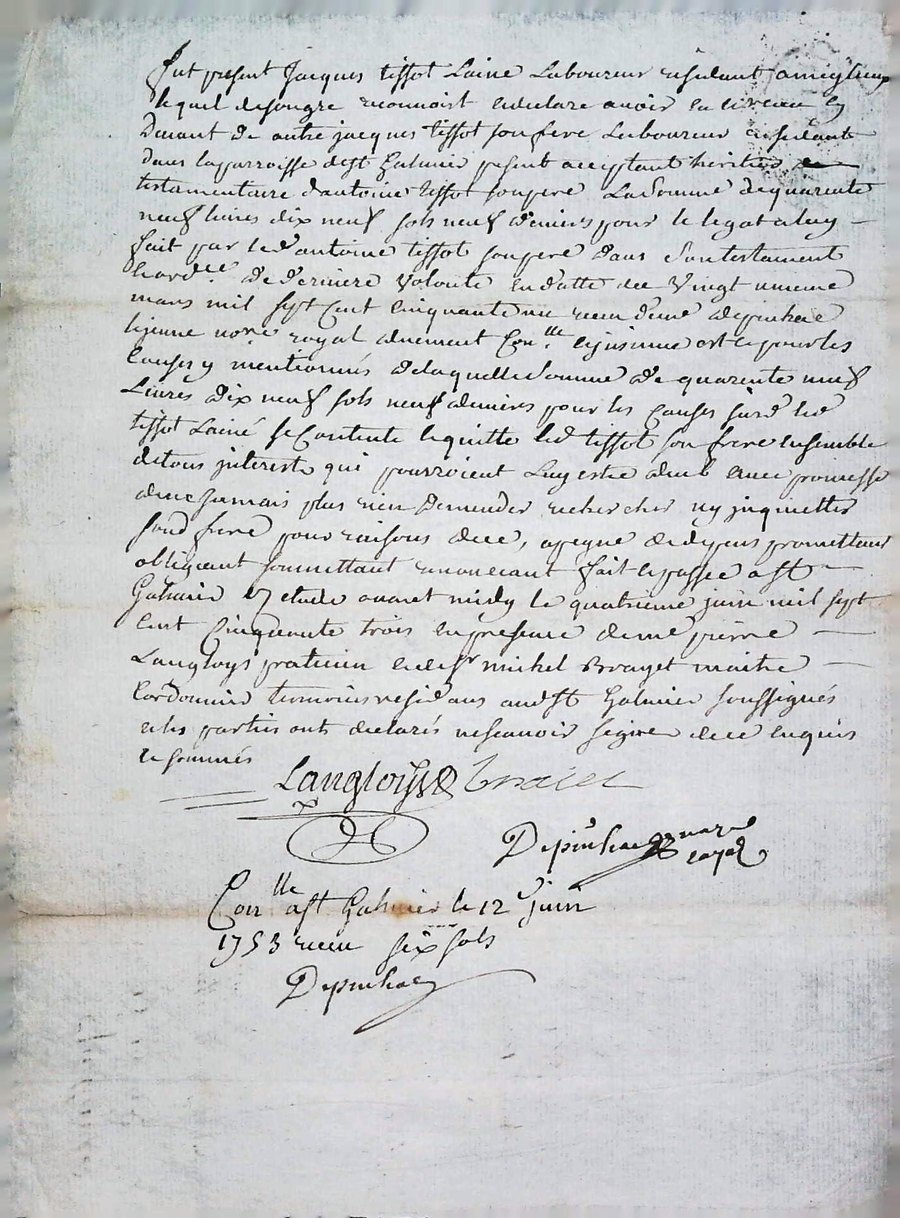 fut present Jacques tissot Laine Laboureur residant a meiglieux
lequel de son gre reconnoist et declare avoir eu et receu cy
devant de autre jacques tissot son frere Laboureur residant
dans la parroisse de st Galmier present acceptant heritier
testamentaire d'antoine tissot son pere La Somme de quarente
neuf livres dix neuf sols neuf deniers pour le legat a luy
fait par led antoine tissot son pere dans son testament
de derniere volonte en datte du vingt unieme
mars mil sept Cent cinquante un receu de me depinhac
le jeune nore royal duement Conlle et insinue et ce pour les
Causes y mentionnés de laquelle Somme de quarente neuf
Livres dix neuf sols neuf deniers pour les Causes susd led
tissot Lainé se Contente et quitte led tissot son frere ensemble
de tous interests qui pourroient Luy estre deub avec promesse
de ne Jamais plus rien Demander rechercher ny inquietter
sond frere pour raisons de ce, a peyne de depens promettant
obligeant soumettant renonceant fait et passé a st
Galmier etude avant midy le quatrieme juin mil sept
Cent Cinquante trois en presence de me pierre
Langloys praticien et de sr michel Brayet maitre
Cordonnier temoins residans aud st Galmier soussignés
et les parties ont declarés ne scavoir signer de ce enquis
et sommés
Langloys Braiet
Depinhac nore
royal
Conlle a st Galmier le 12e juin
1753 receu six sols
Depinhac